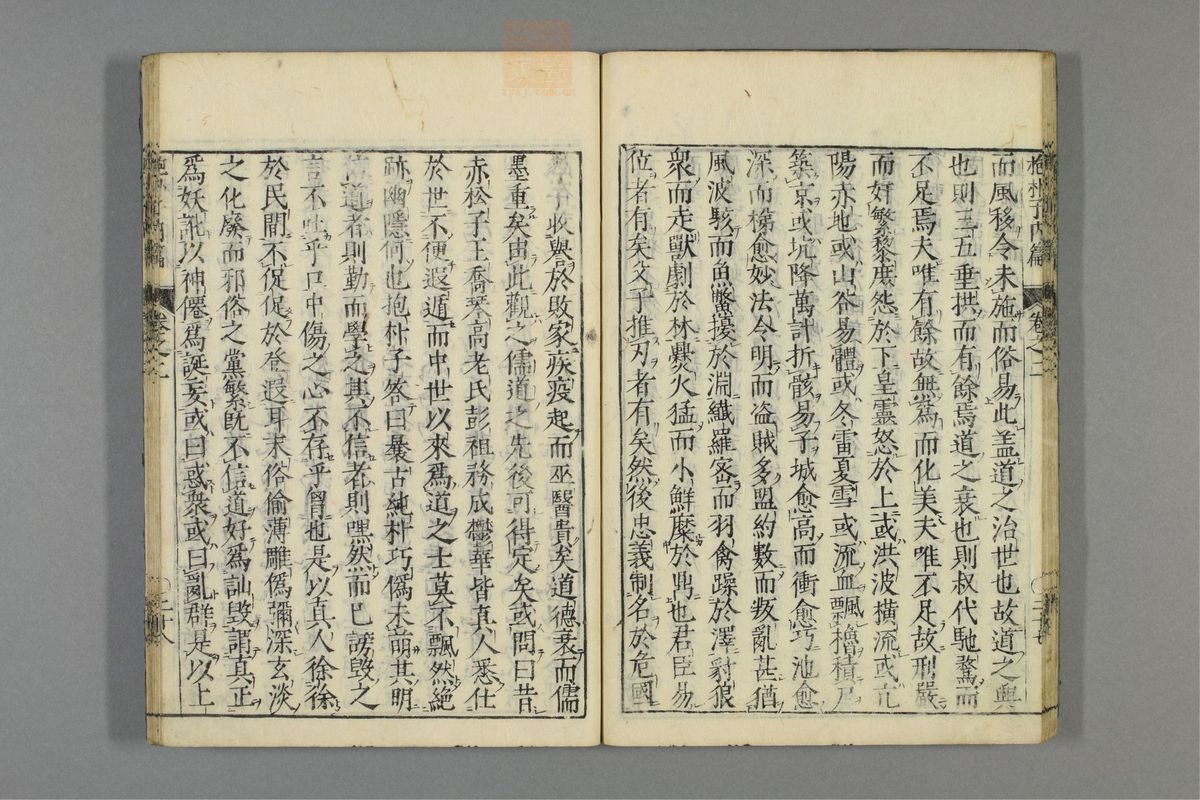 抱朴子內篇 卷之二
而風移令未施而俗易此盖道之治世也故道之興
也則三五垂拱而有餘焉道之衰也則叔代馳騖而
不足焉夫唯有餘故無為而化美夫唯不足故刑嚴
而奸繁黎庶怨於下皇靈怒於上或洪波橫流或亢
陽赤地或山谷易體或冬雷夏雪或流血飄櫓積尸
築京或坑降萬計折骸易子城愈高而衝愈巧池愈
深而梯愈妙法令明而盜賊多盟約數而叛亂甚猶
風波駭而魚鱉擾於淵纖羅密而羽禽躁於澤豺狼
衆而走獸劇於林爨火猛而小鮮糜於鼎也君臣易
位者有矣父子推刃者有矣然後忠義制名於危國
孝子收譽於敗家疾疫起而巫醫貴矣道德衰而儒
墨重矣由此觀之儒道之先後可得定矣或問曰昔
赤松子王喬琴高老氏彭祖務成鬱華皆真人悉仕
於世不便遐遁而中世以來為道之士莫不飄然絕
跡幽隱何也抱朴子答曰曩古純朴巧偽未萌其明
信道者則勤而學之其不信者則嘿然而已謗毀之
言不吐乎口中傷之心不存乎胷也是以真人徐徐
於民間不促促於登遐耳末俗偷薄雕偽彌深玄淡
之化廢而邪俗之黨繁既不信道好為訕毀謂真正
為妖訛以神僊為誕妄或曰惑衆或曰亂群是以上
內篇 卷之二